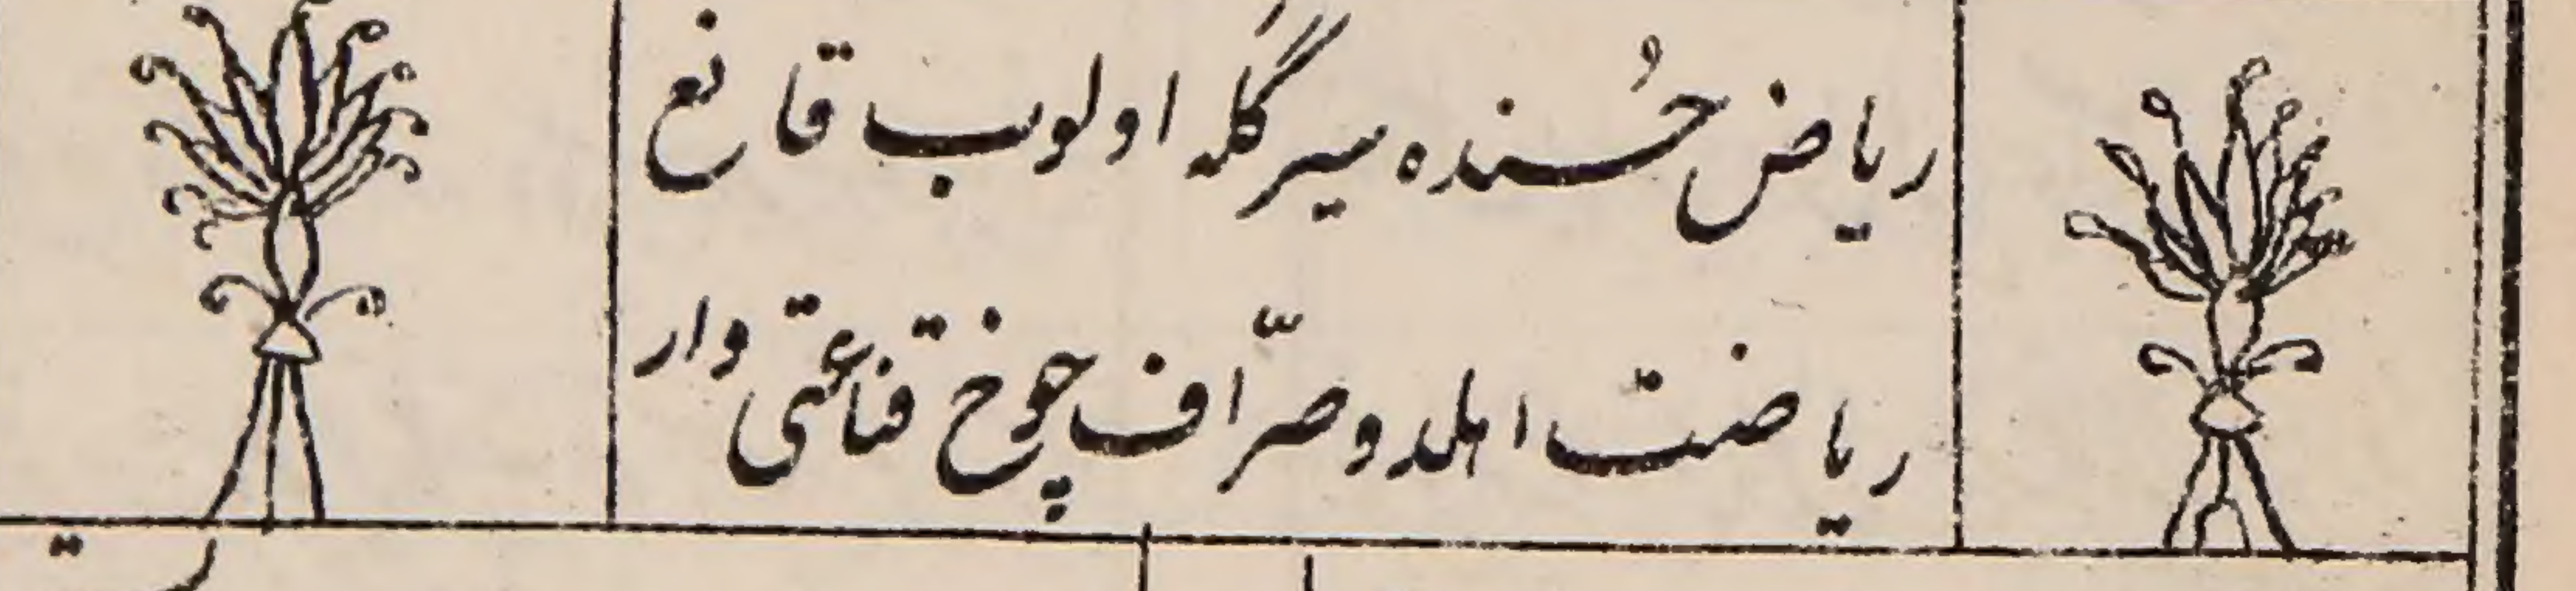 ریاض حُسنده سیر گله اولوب قانع
ریاضت اهلدو صرّاف چوخ قناعتی وار